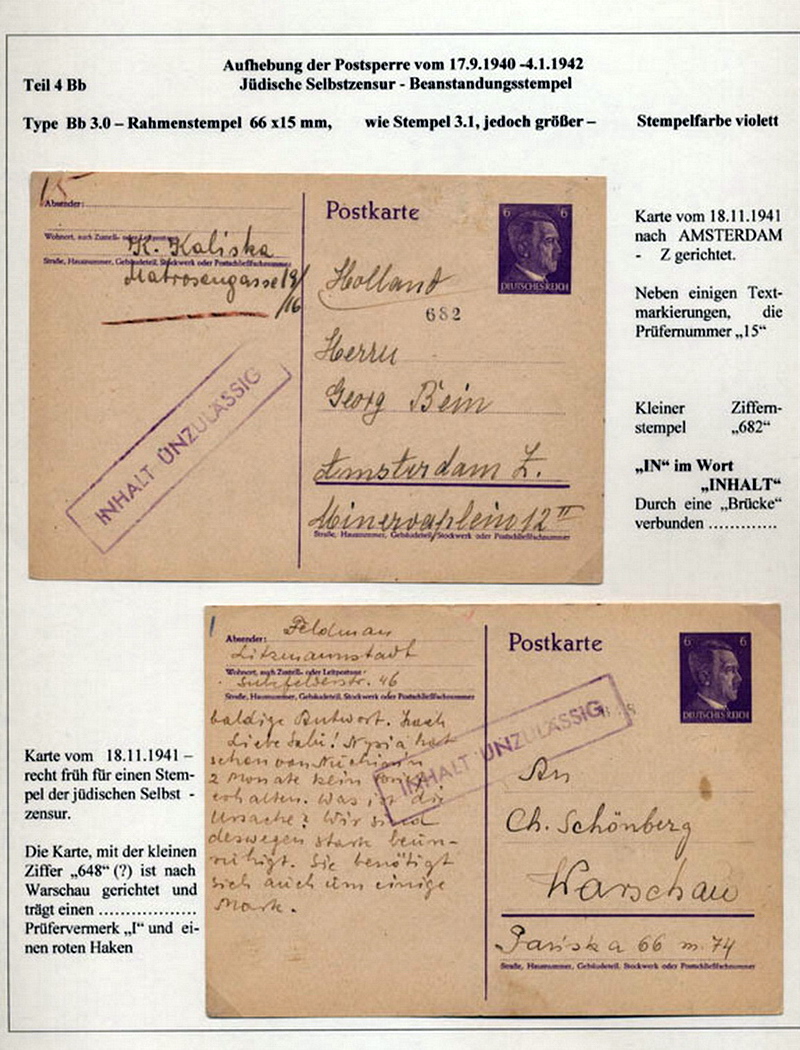 Aufhebung der Postsperre vom 17.9.1940 -4.1.1942
Teil 4 Bb
Jüdische Selbstzensur - Beanstandungsstempel
Type Bb 3.0 – Rahmenstempel 66 x15 mm, wie Stempel 3.1, jedoch größer – Stempelfarbe violett
15
Absender:
Wohnort, auch Zustell- oder Leitpostamt
K. Kaliska
Straße, Hausnummer, Gebäudeteil, Stockwerk oder Postschließfachnummer
Matrosengasse 19/
/16
INHALT UNZULÄSSIG
Postkarte
6 6
DEUTSCHES REICH
Holland
682
Herrn
Georg Bein
Amsterdam Z.
Minervaplein 12 II
Straße, Hausnummer, Gebäudeteil, Stockwerk oder Postschließfachnummer
Karte vom 18.11.1941
nach AMSTERDAM
- Z gerichtet.
Neben einigen Text-
markierungen, die
Prüfernummer „15“
Kleiner Ziffern-
stempel „682“
„IN“ im Wort
„INHALT“
Durch eine „Brücke“
verbunden .............
Absender: Feldman
Litzmannstadt
Wohnort, auch Zustell- oder Leitpostamt
46
Straße, Hausnummer, Gebäudeteil, Stockwerk oder Postschließfachnummer
baldige Antwort. Hach
Liebe Sabi! Nysia hat
schon von
2 Monate kein
erhalten. Was ist die
Ursache? Wir sind
deswegen stark beun-
ruhigt. Sie benötigt
sich auch um einige
Mark.
INHALT UNZULÄSSIG
Postkarte
6 6
DEUTSCHES REICH
An
Ch. Schönberg
Warschau
Pańska 66 m. 74
Straße, Hausnummer, Gebäudeteil, Stockwerk oder Postschließfachnummer
Karte vom 18.11.1941 –
recht früh für einen Stem-
pel der jüdischen Selbst -
zensur.
Die Karte, mit der kleinen
Ziffer „648“ (?) ist nach
Warschau gerichtet und
trägt einen ..................
Prüfervermerk „I“ und ei-
nen roten Haken